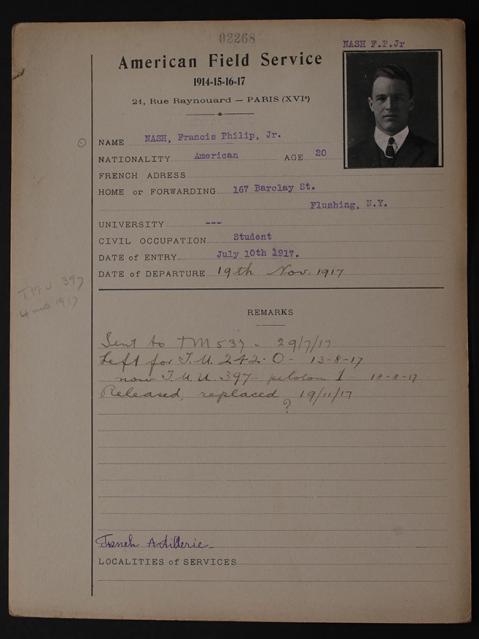 02268
NASH F.P.Jr
American Field Service
1914-15-16-17
21, Rue Raynouard — PARIS (XVIe)
NAME NASH, Francis Philip, Jr.
NATIONALITY American AGE 20
FRENCH ADRESS
HOME or FORWARDING 167 Barclay St.
Flushing, N.Y.
UNIVERSITY ---
CIVIL OCCUPATION Student
DATE of ENTRY July 10th 1917.
DATE of DEPARTURE 19th Nov. 1917
TMU 397
1917
REMARKS
Sent to TM 537 - 29/7/17
Left for T.U. 242.O - 13-8-17
now T.M.U. 397 peloton 1
Released, replaced 19/11/17
?
French Artillerie
LOCALITIES of SERVICES